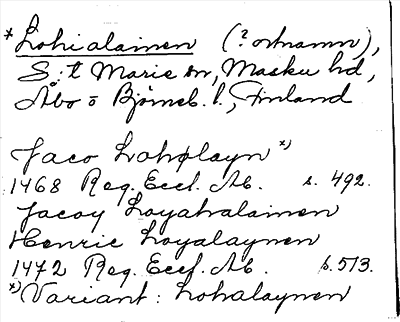 *Lohialainen (? ortnamn),
S:t Marie sn, Masku hd,
Åbo o Björneb. l., Finland
Jaco Loholayn *)
1468 Reg. Eccl. Ab. s. 492.
Jacoy Loyahalainen
Henric Loyalaynen
1472 Reg. Eccl. Ab. s. 513.
*) Variant: Lohalaynen